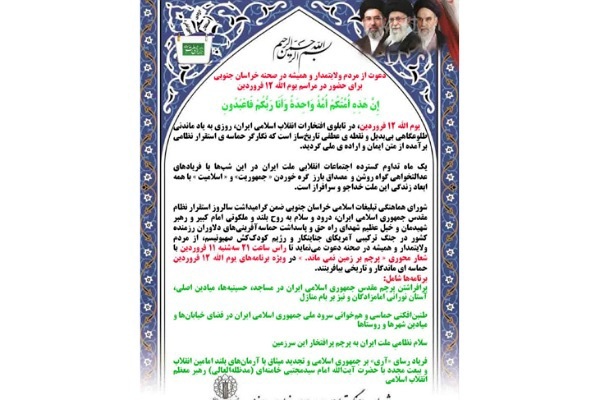 بسم الله الرحمن الرحیم
دعوت از مردم ولایتمدار و همیشه در صحنه خراسان جنوبی
برای حضور در مراسم یوم الله ۱۲ فروردین
إِنَّ هَذِهِ أُمَّتُكُمْ أُمَّةً وَاحِدَةً وَأَنَا رَبُّكُمْ فَاعْبُدُونِ
یوم الله ۱۲ فروردین، در تابلوی افتخارات انقلاب اسلامی ایران، روزی به یاد ماندنی
طلوعگاهی بی‌بدیل و نقطه ی عطفی تاریخ‌ساز است که نگارگر حماسه ی استقرار نظامی
برآمده از متن ایمان و اراده ی ملی گردید.
یک ماه تداوم گسترده اجتماعات انقلابی ملت ایران در این شب‌ها با فریادهای
عدالتخواهی گواه روشن و مصداق بارز گره خوردن « جمهوریت» و « اسلامیت » با همه
ابعاد زندگی این ملت خداجو و سرافراز است.
شورای هماهنگی تبلیغات اسلامی خراسان جنوبی ضمن گرامیداشت سالروز استقرار نظام
مقدس جمهوری اسلامی ایران، درود و سلام به روح بلند و ملکوتی امام کبیر و رهبر
شهیدمان و خیل عظیم شهدای راه حق و پاسداشت حماسه آفرینی‌های دلاوران رزمنده
کشور در جنگ ترکیبی آمریکای جنایتکار و رژیم کودک‌کش صهیونیسم، از مردم
ولایتمدار و همیشه در صحنه دعوت می‌نماید تا راس ساعت ۲۱ سه‌شنبه ۱۱ فروردین با
شعار محوری « پرچم بر زمین نمی ماند. » در ویژه برنامه‌های یوم الله ۱۲ فروردین
حماسه ای ماندگار و تاریخی بیافرینند.
برنامه‌ها شامل:
برافراشتن پرچم مقدس جمهوری اسلامی ایران در مساجد، حسینیه‌ها، میادین اصلی،
آستان نورانی امامزادگان و نیز بر بام منازل
طنین‌افکنی حماسی و هم‌خوانی سرود ملی جمهوری اسلامی ایران در فضای خیابان‌ها و
میادین شهرها و روستاها
سلام نظامی ملت ایران به پرچم پرافتخار این سرزمین
فریاد رسای «آری» بر جمهوری اسلامی و تجدید میثاق با آرمان‌های بلند امامین انقلاب
و بیعت مجدد با حضرت آیت‌الله امام سیدمجتبی خامنه‌ای (مدظله‌العالی) رهبر معظم
انقلاب اسلامی